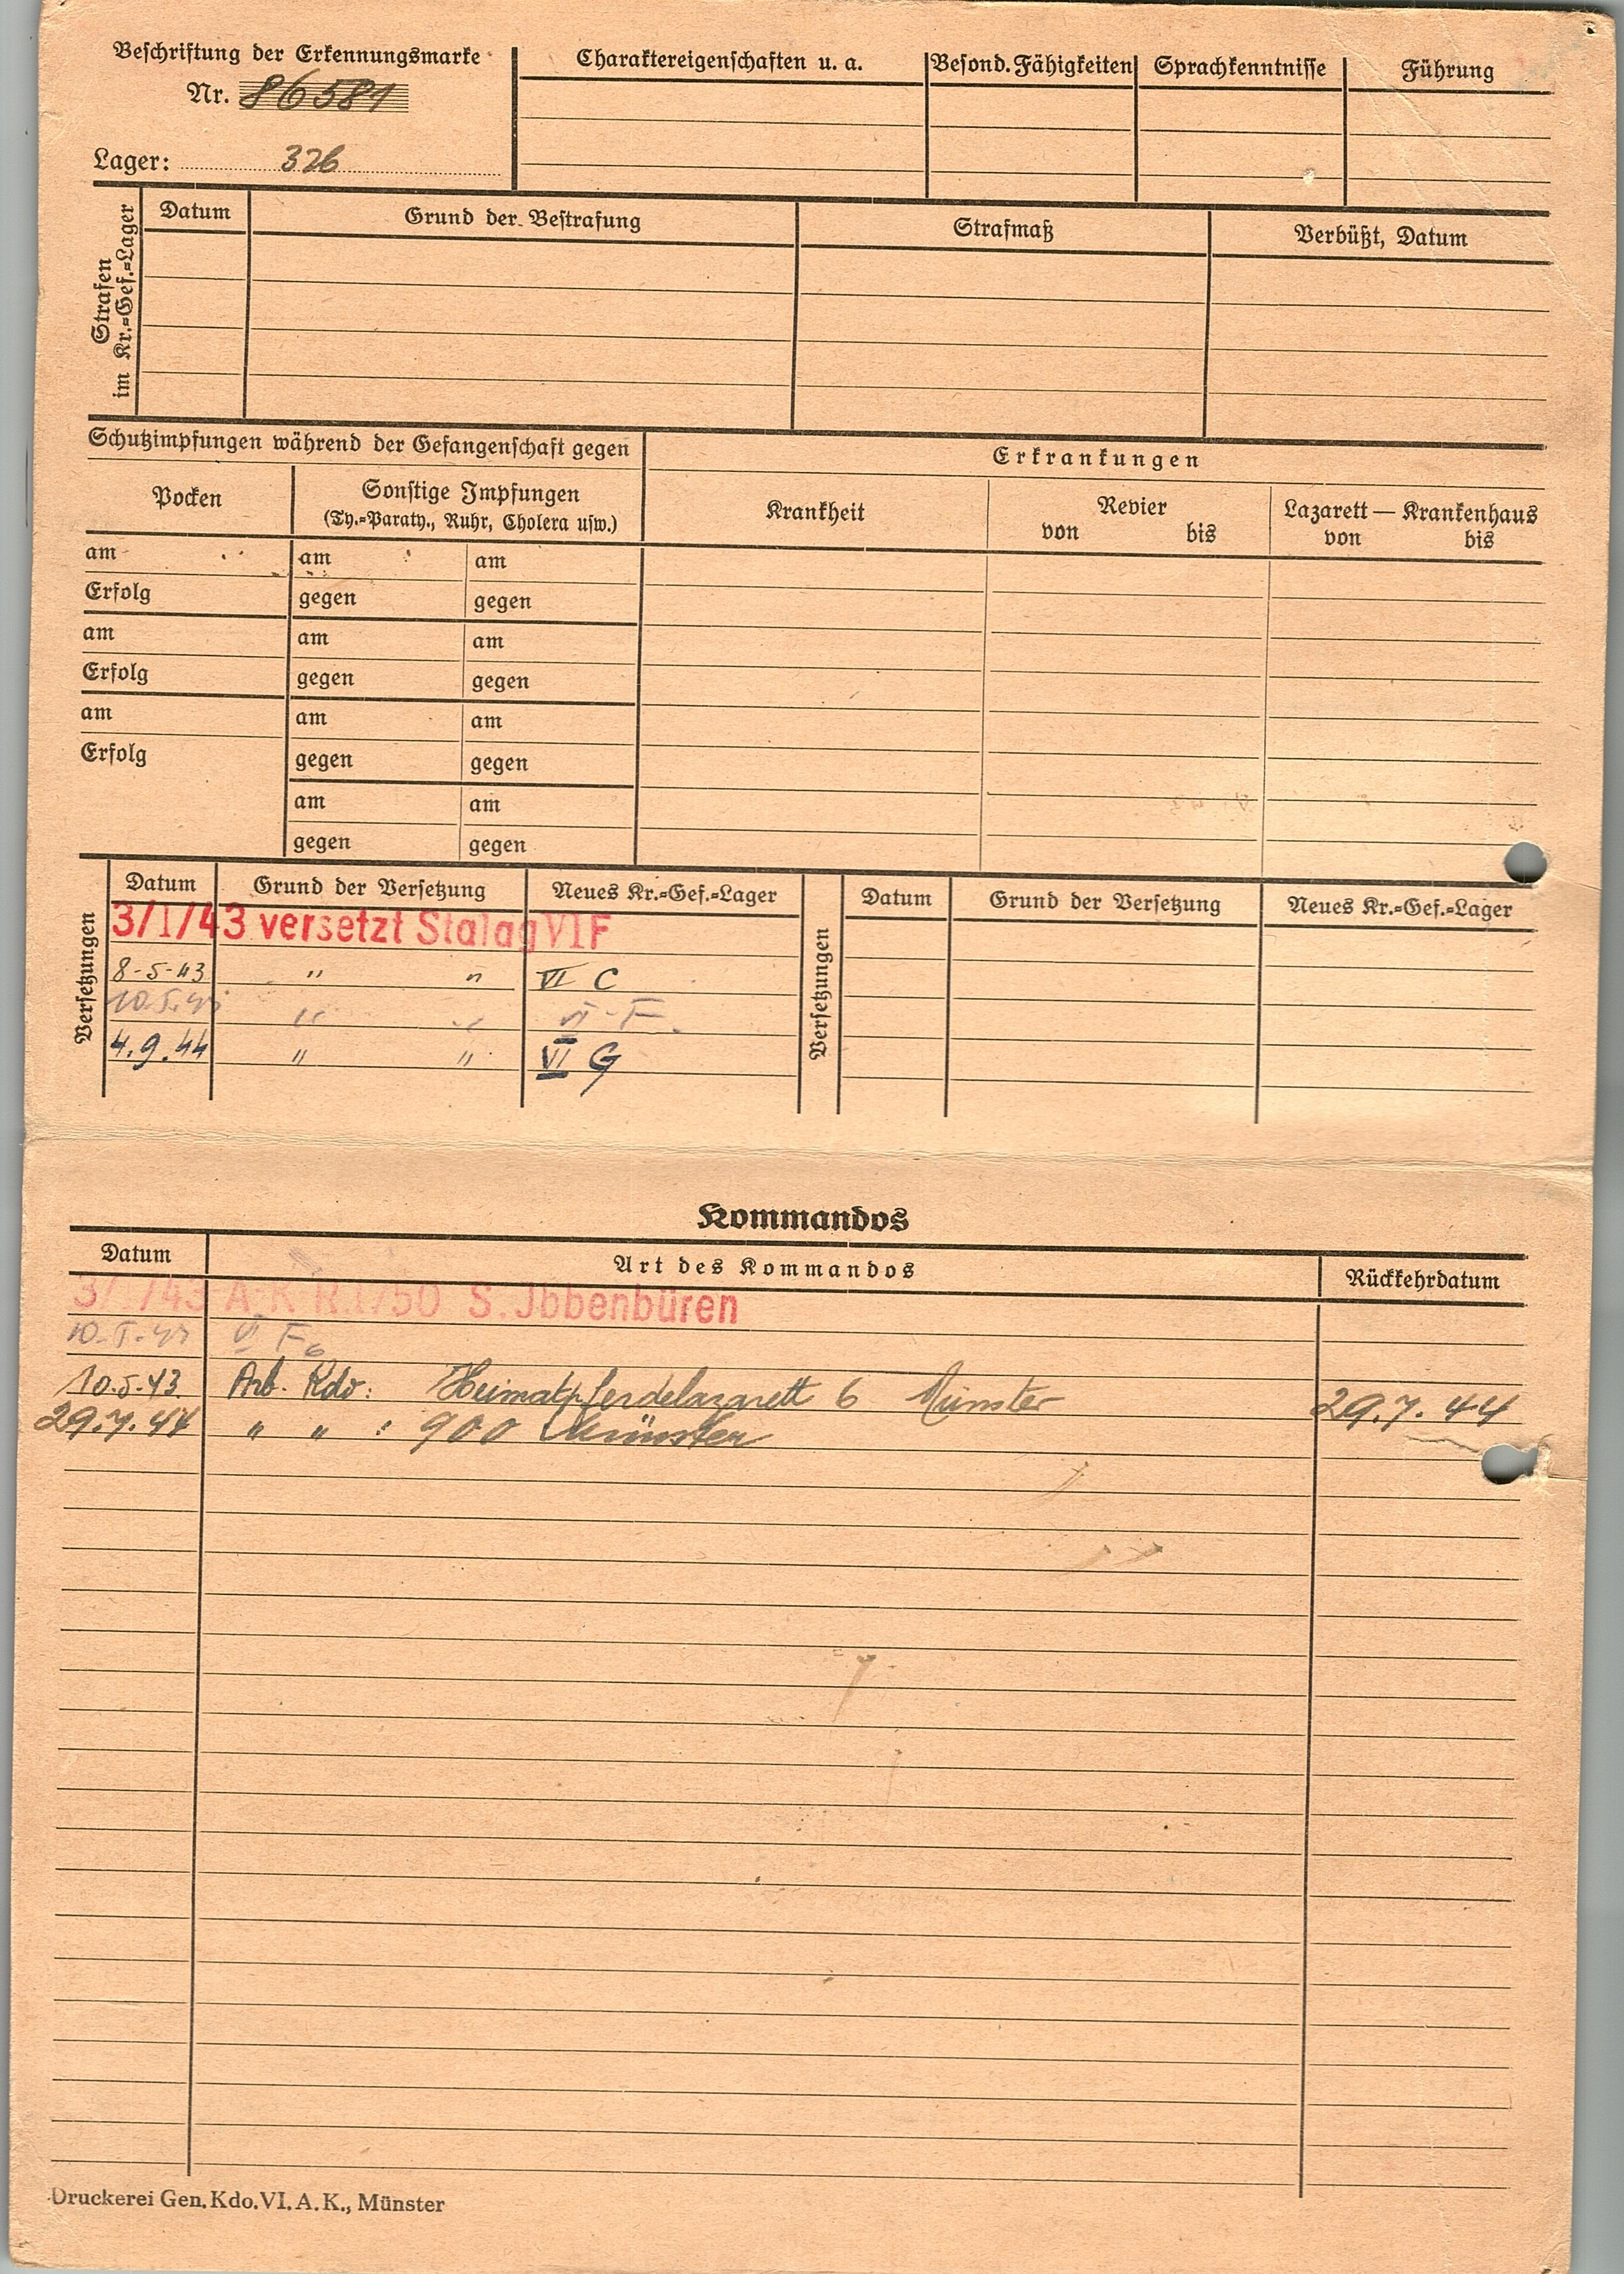 Beschriftung der Erkennungsmarke
Nr. 86581
Lager: 326
Charaktereigenschaften u. a.
Besond. Fähigkeiten
Sprachkenntnisse
Führung
Strafen
im Kr.=Gef.=Lager
Datum
Grund der Bestrafung
Strafmaß
Verbüßt, Datum
Schutzimpfungen während der Gefangenschaft gegen
Erkrankungen
Pocken
Sonstige Impfungen
(Ty.=Paraty., Ruhr, Cholera usw.)
Krankheit
Revier
von bis
Lazarett — Krankenhaus
von bis
am am am
Erfolg gegen gegen
am am am
Erfolg gegen gegen
am am am
Erfolg gegen gegen
am am
gegen gegen
Versetzungen
Datum Grund der Versetzung Neues Kr.=Gef.=Lager
3/1/43 versetzt Stalag VI F
8-5-43 " " VI C
10.5.43 " " VI-F.
4.9.44 " " VI G
Versetzungen
Datum Grund der Versetzung Neues Kr.=Gef.=Lager
Kommandos
Datum Art des Kommandos Rückkehrdatum
3/1/43 A.K R.1/50 S. Jbbenbüren
10-5-43 VI F
10.5.43 Arb. Kdo: Heimatpferdelazarett 6 Münster 29.7.44
29.7.44 " " : 900 Münster
Druckerei Gen. Kdo. VI. A. K., Münster